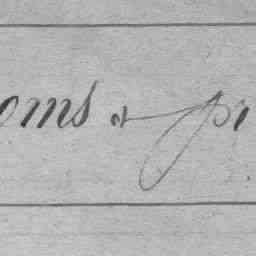 oms & pr